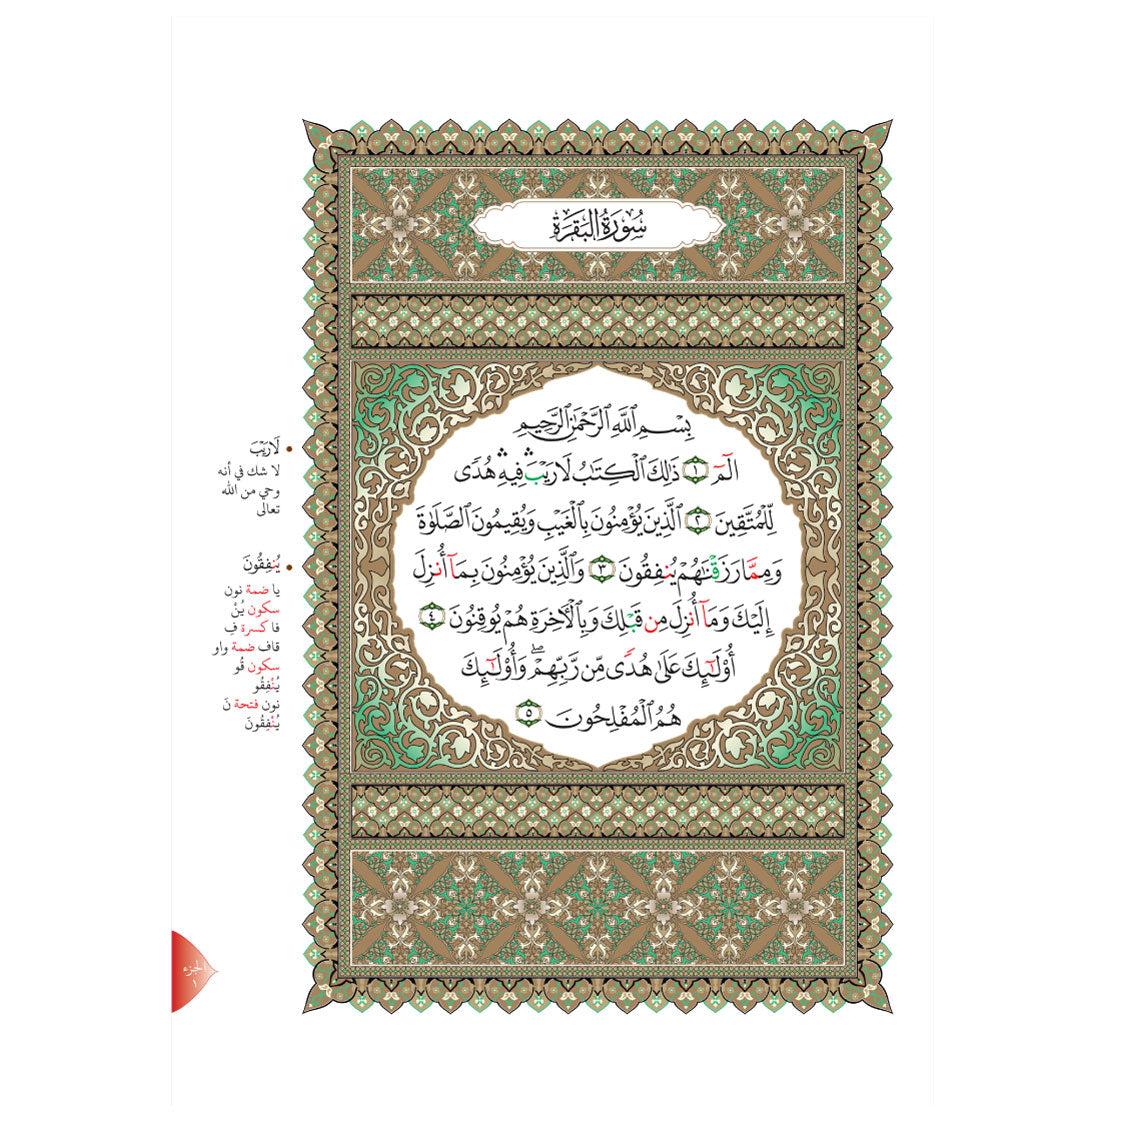 سُورَةُ البَقَرَةِ
بِسْمِ ٱللَّهِ ٱلرَّحْمَٰنِ ٱلرَّحِيمِ
الٓمٓ ١ ذَٰلِكَ ٱلْكِتَٰبُ لَا رَيْبَ ۛ فِيهِ ۛ هُدًى
لِّلْمُتَّقِينَ ٢ ٱلَّذِينَ يُؤْمِنُونَ بِٱلْغَيْبِ وَيُقِيمُونَ ٱلصَّلَوٰةَ
وَمِمَّا رَزَقْنَٰهُمْ يُنفِقُونَ ٣ وَٱلَّذِينَ يُؤْمِنُونَ بِمَآ أُنزِلَ
إِلَيْكَ وَمَآ أُنزِلَ مِن قَبْلِكَ وَبِٱلْءَاخِرَةِ هُمْ يُوقِنُونَ ٤
أُو۟لَٰٓئِكَ عَلَىٰ هُدًى مِّن رَّبِّهِمْ ۖ وَأُو۟لَٰٓئِكَ
هُمُ ٱلْمُفْلِحُونَ ٥
• لَا رَيْبَ
لا شك في أنه
وحي من الله
تعالى
• يُنفِقُونَ
يا ضمة نون
سكون يُنْ
فا كسرة فِ
قاف ضمة واو
سكون قُو
يُنْفِقُو
نون فتحة نَ
يُنْفِقُونَ
الجزء
١